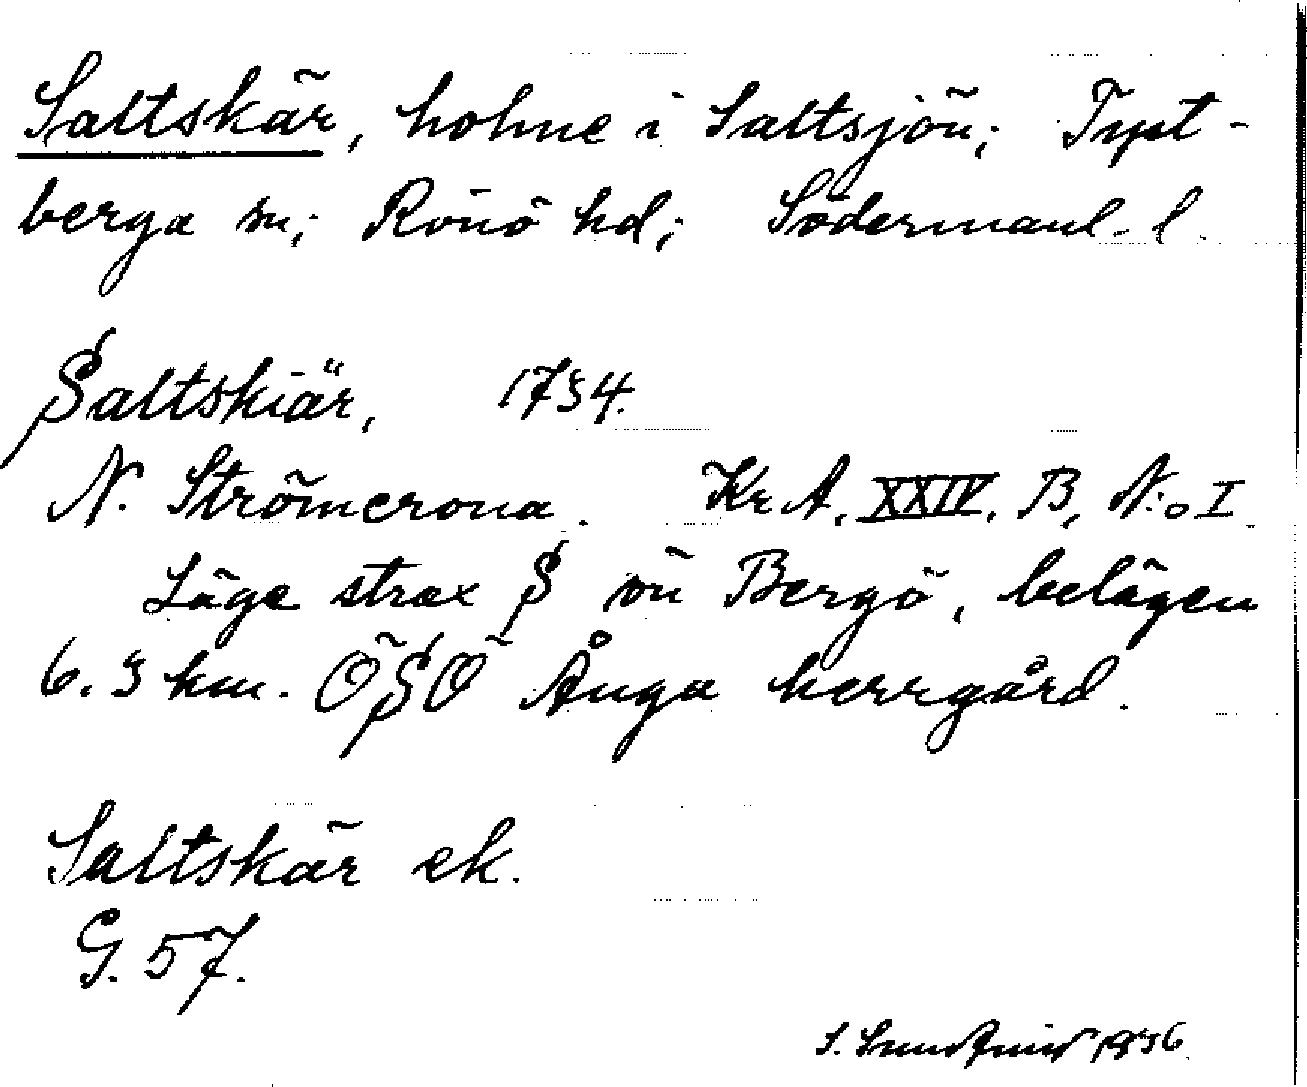 Saltskär, holme i Saltsjön; Tyst-
berga sn; Rönö hd; Södermanl. l.
Saltskiär, 1734.
N. Strömcrona. Kr A. XXIV. B, N:o I.
Läge strax S om Bergö, belägen
6.3 km. ÖSÖ Ånga herrgård.
Saltskär ek.
G. 57.
S. 1936.